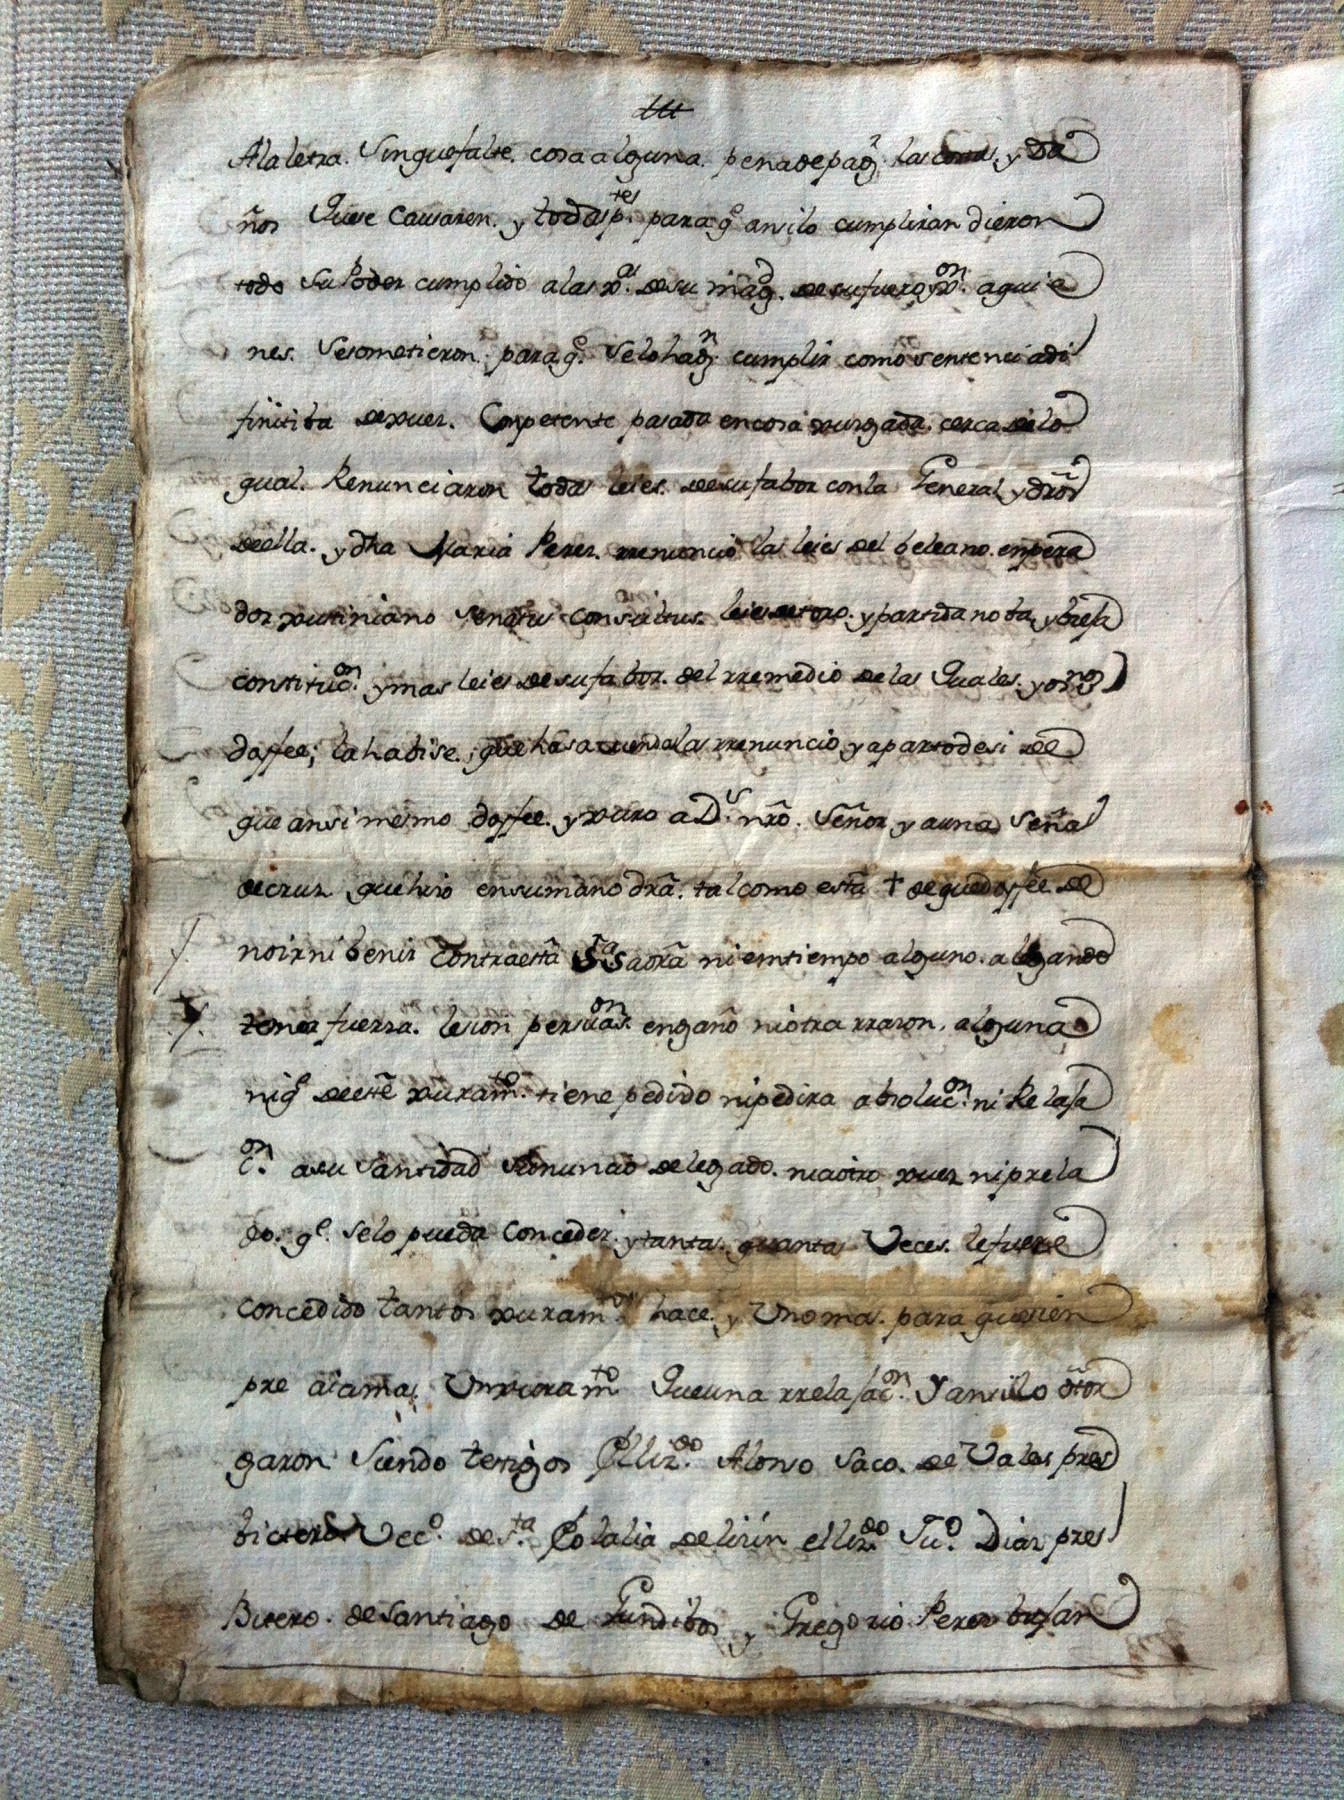 Ala letra. Sinque falte. cosa alguna. pena de pagr. las costas, y da
ños Quese Causaren. y todas ptes. para qe ansi lo cumpliran dieron
todo Su Poder cumplido a las xas. de su magd. de su fuero y xon. a quie
nes. Se sometieron. para qe. Se lo hagn. cumplir como sentencia di
finitiba de xuez. Conpetente pasada en cosa xuzgada. cerca de lo
qual. Renunciaron todas leies. de su fabor con la General y dros
de ella. y dha Maria Perez. rrenuncio las leies del beleano. enpera
dor xustiniano Senatus Consultus. leies de toro. y partida noba, y biexa
constitucon. y mas leies de su fabor. del rremedio de las Quales. yo ssno
doffee; la habise. que las rrenuncio y aparto de si de
que ansi mesmo doffee. y xuro a Ds. nro. Señor, y a una Señal
de cruz que hizo en su mano dra. tal como esta † de que doffee. de
no ir ni benir Contra esta Sra aora ni en tiempo alguno. alegando
temor fuerza. lesion persuason. engaño ni otra rrazon, alguna
ni qe de este xuramto. tiene pedido ni pedira absolucon. ni Relaxa
con. a su Santidad Su nuncio delegado. ni a otro xuez ni prela
do. qe. Se lo pueda Conceder. y tantas. quantas Veces. le fuere
concedido tantos xuramtos hace. y Uno mas. para que sien
pre aia mas Un xuramto Que una rrelaxacon. Y ansi lo otor
garon Siendo testigos El lizdo. Alonso Saco. de Vales pres
bitero Veco. de Sta. Eolalia de lizin el lizdo. Juo. Diaz pres
Bitero. de Santiago de Gundibos y Gregorio Perez